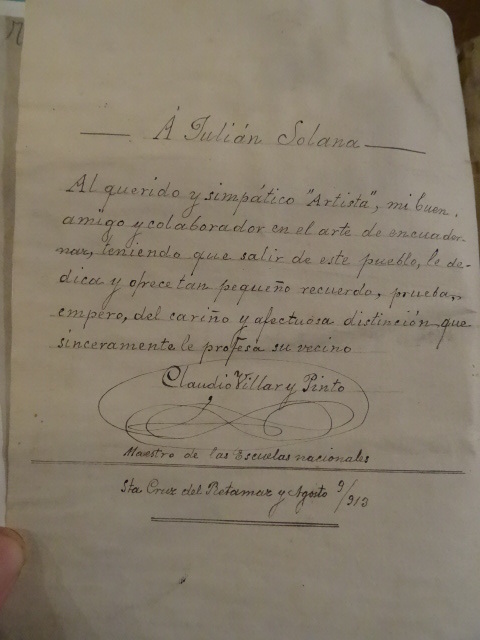 Á Julián Solana
Al querido y simpático "Artista", mi buen
amigo y colaborador en el arte de encuader-
nar, teniendo que salir de este pueblo, le de-
dica y ofrece tan pequeño recuerdo, prueba,
empero, del cariño y afectuosa distinción que
sinceramente le profesa su vecino
Claudio Villar y Pinto
Maestro de las Escuelas nacionales
Sta Cruz del Retamar y Agosto 9/913